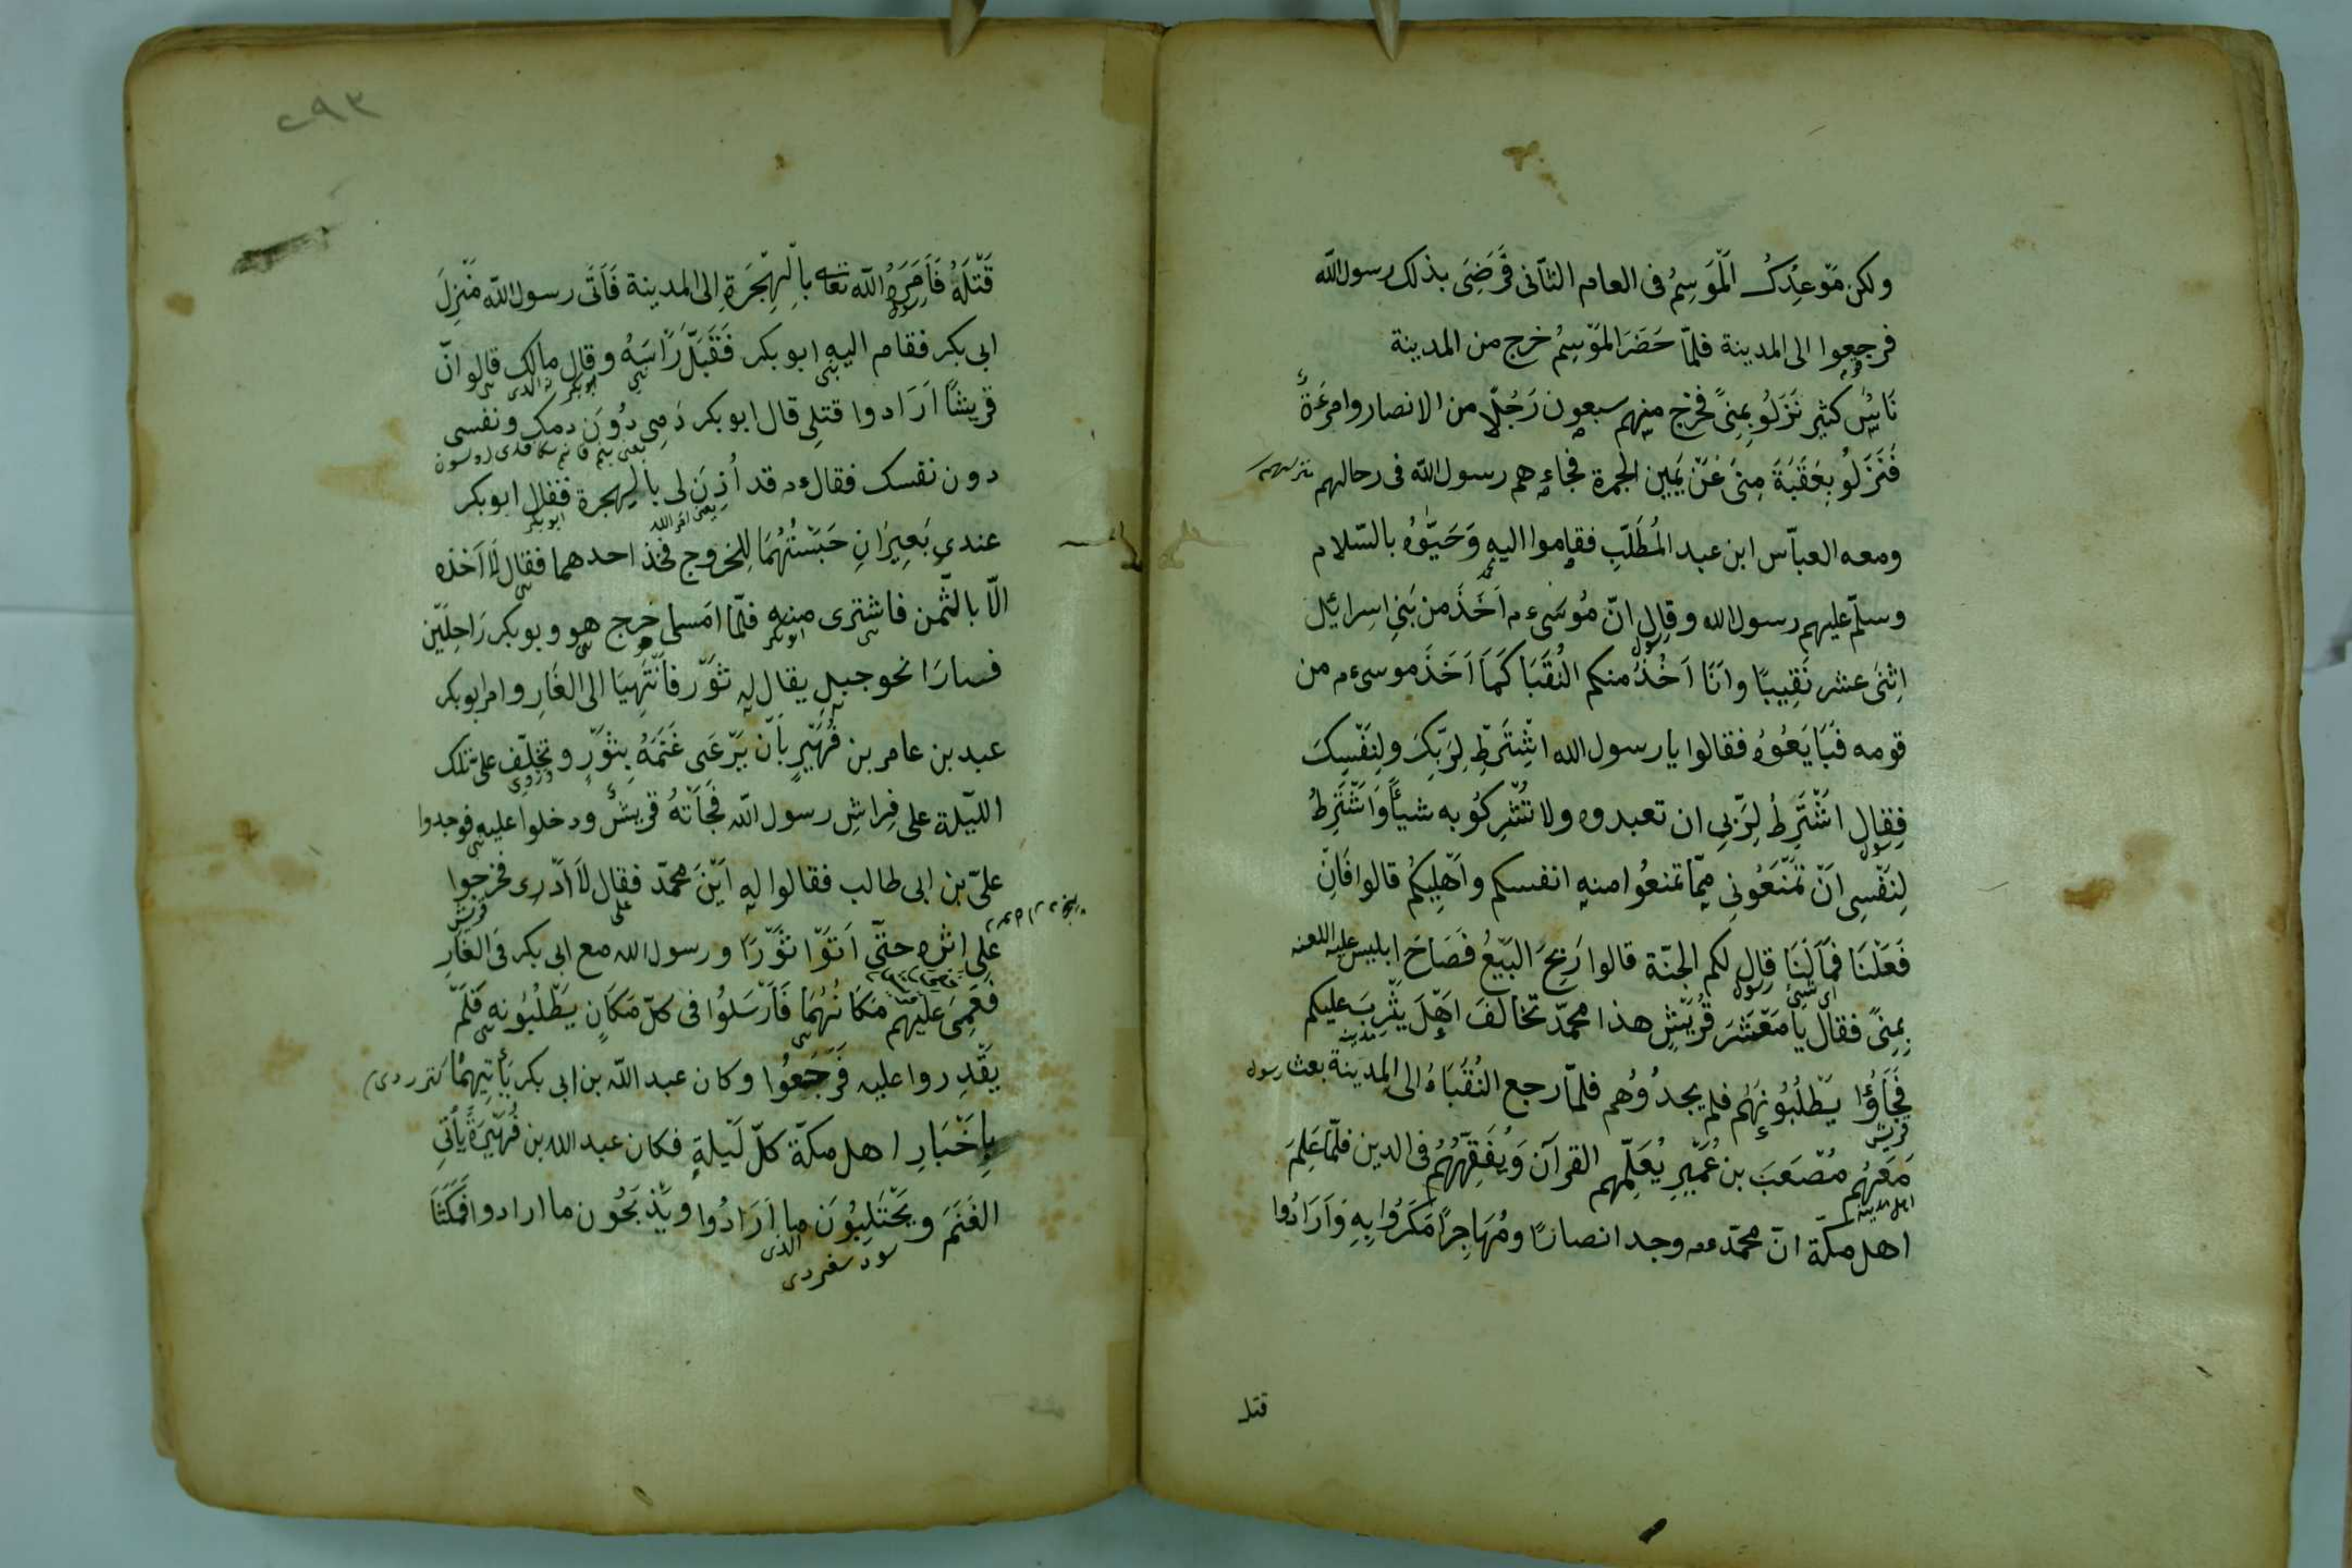 ولكن مَوْعِدُكَ اَلْمَوْسِمُ فى العام الثّانى فَرَضِىَ بذلك رسول الله
فرجعوا الى المدينة فلمّا حَضَرَ المَوْسِمُ خرج من المدينة
نَاسٌ كثير نَزَلُو بِمِنىً فخرج منهم سبعون رَجُلًا من الانصار وامرءَةٌ
فَنَزَلُو بِعَقَبَةَ مِنىً عَنْ يَمِينِ الجمرة فجاءهم رسول الله فى رحالهم
ومعه العبّاس ابن عبد المُطَلّبِ فقاموا اليه وَحَيَّوْهُ بالسّلام
وسلّم عليهم رسول الله وقال انّ مُوسَىءم اَخَذَ من بَنِى اسرائيل
رسول
اِثْنَى عشر نَقِيبًا وَاَنَا اَخُذُ منكم النُقَبَا كَمَا اَخَذَ موسىءم من
قومه فَبَايَعُوهُ فقالوا يا رسول الله اشْتَرِطْ لِرَبِّكَ ولِنَفْسِكَ
فقال اَشْتَرِطُ لِرَبّى ان تعبدوه ولا تُشْرِكُو به شيأً وَاَشْتَرِطُ
رسول
لِنَفْسِى اَنْ تَمْنَعُونِى مِمّا تمنعُوا منه انفسكم واَهْلِيكُمْ قالوا فَاِنْ
فَعَلْنَا فَمَا لَنَا قال لكم الجنّة قالوا رَبِحَ البَيْعُ فَصَاحَ ابليس عليه اللعنه
اى شيئ رسول
بِمِنىً فقال يا مَعْشَرَ قُرَيْشٍ هذا محمّد تخالف اَهْلَ يَثْرِبَ عليكم
مدينه
فَجَاؤُا يَطْلُبُونَهُم فلم يجدُوُهم فلمّا رجع النُقَبَاءُ الى المدينة بعث رسول
قريش
مَعَهُم مُصْعَبَ بن عُمَيْرٍ يُعَلِّمهم القرآن وَيُفَقِّهُهُمْ فى الدين فلمّا عَلِمَ
اهل مدينه
اهل مكّة انّ محمّد وجد انصارًا ومُهَاجِرًا مَكَرُوا بِهِ وَاَرَادُوا
قتل
٢٩٣
قَتْلَهُ فَاَمَرَهُ الله تعالى بِالْهِجْرَةِ الى المدينة فَاَتَى رسول الله مَنْزِلَ
رسول
ابى بكر فقام اليه ابو بكر فَقَبَّلَ رَاْسَهُ وقال مالك قال انّ
ابو بكر
قريشًا اَرَادوا قتلى قال ابو بكر دَمِى دُونَ دمك ونفسى
دون نفسك فقالءم قد اُذِنَ لى بالهجرة فقال ابو بكر
يعنى امر الله ابو بكر
عندى بَعِيرَانِ حَبَسْتُهُمَا لِلخروج فخذ احدهما فقال لَا اَخذه
الّا بالثّمن فاشترى منه فلمّا امسى خرج هو وبو بكر رَاحِلَيْن
ابو بكر
فسارَا نحو جبلٍ يقال له ثَوْر فَانْتَهَيَا الى الغَارِ وامر ابو بكر
عبد بن عامر بن فُهَيْرٍ بِاَن يَرْعَى غَنَمَهُ بِثَوْرٍ وتخلّف علىّ تلك
اللّيلة على فِراشِ رسول الله فَجَاَتْهُ قريشٌ ودخلوا عليه فوجدوا
علىّ بن ابى طالب فقالوا له اَيْنَ محمّد فقال لَا اَدْرى فخرجوا
على قريش
على اثره حتّى اَتَوْا ثَوْرًا ورسول الله مع ابى بكر فى الغَارِ
فَعَمِىَ عليهم مَكَانُهُمَا فَاَرْسَلُوا فى كلّ مَكَانٍ يَطْلُبُونه فَلَمْ
يَقْدِروا عليه فَرَجَعُوا وكان عبد الله بن ابى بكر يَأْتِيهِمُا
بِاَخْبَارِ اهل مكّة كلّ لَيْلةٍ فكان عبد الله بن فُهَيْرَةَ يَأتِى
الغَنَمَ ويَحْتَلِبُوْنَ ما اَرَادُوا ويَذْبَحُون ما ارادوا فمَكَثَا
الذى